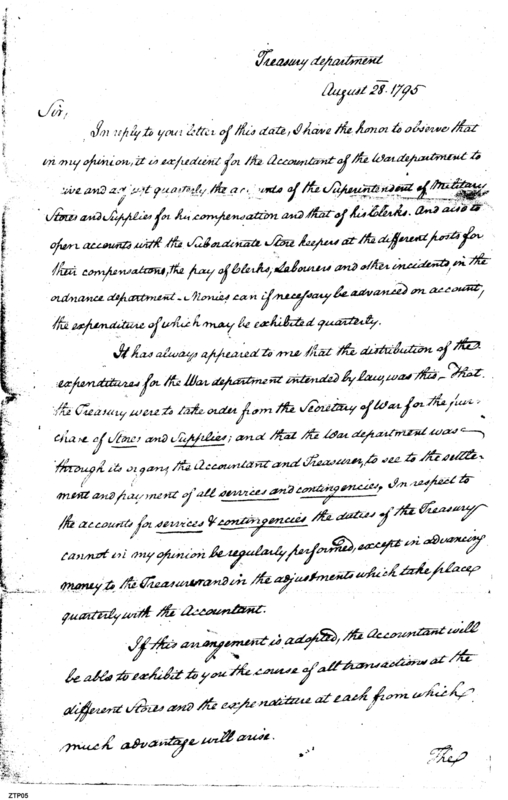 Treasury department
August 28. 1795
Sir,
In reply to your letter of this date, I have the honor to observe that
in my opinion, it is expedient for the Accountant of the War department to
ive and adjust quarterly the accounts of the Superintendent of Military
Stores and Supplies for his compensation and that of his Clerks. And also to
open accounts with the Subordinate Store keepers at the different posts for
their compensations, the pay of Clerks, Labourers and other incidents, in the
ordnance department - Monies can if necessary be advanced on account,
the expenditure of which may be exhibited quarterly.
It has always appeared to me that the distribution of the
expenditures for the War department intended by law, was this, - That
the Treasury were to take order from the Secretary of War for the pur-
chase of Stores and Supplies; and that the War department was -
through its organs, the Accountant and Treasurer, to see to the settle-
ment and payment of all services and contingencies. In respect to
the accounts for services & contingencies the duties of the Treasury
cannot in my opinion be regularly performed, except in advancing
money to the Treasurer and in the adjustments which take place
quarterly with the Accountant.
If this arrangement is adopted, the Accountant will
be able to exhibit to you the course of all transactions at the
different Stores and the expenditure at each from which
much advantage will arise.
The
ZTP05